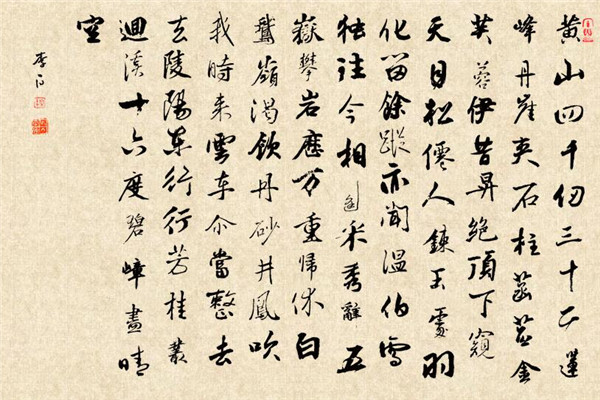 黄山四千仞三十二蓮
峰丹崖夾石柱菡萏金
芙蓉伊昔昇絕頂下窺
天目松僊人鍊玉處羽
化留餘蹤亦聞温伯雪
独往今相采秀辭五
嶽攀岩歷万重歸休白
鵞嶺渴飲丹砂井鳳吹
我時来雲车尒當整去
去陵陽东行行芳桂叢
迴溪十六度碧嶂盡晴
空
李白